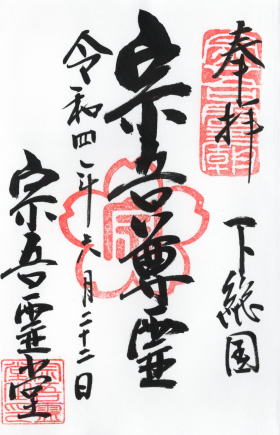 奉拝
下総国
宗吾尊霊
令和四年六月二十二日
宗吾霊堂